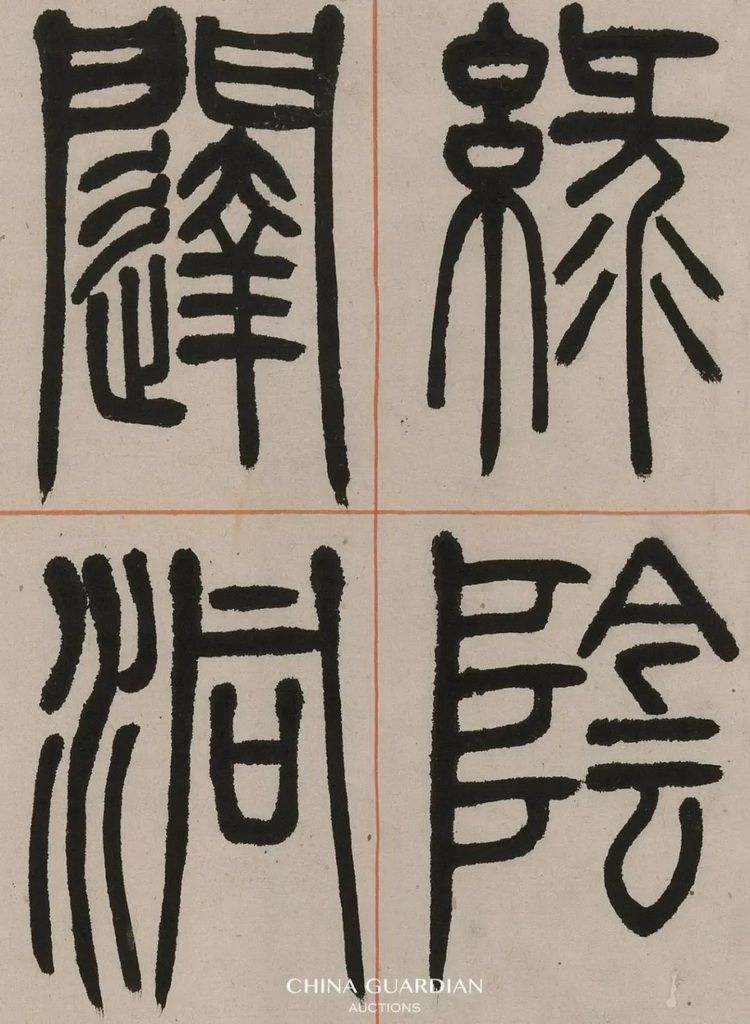 綠陰
闥洞
CHINA GUARDIAN
AUCTIONS